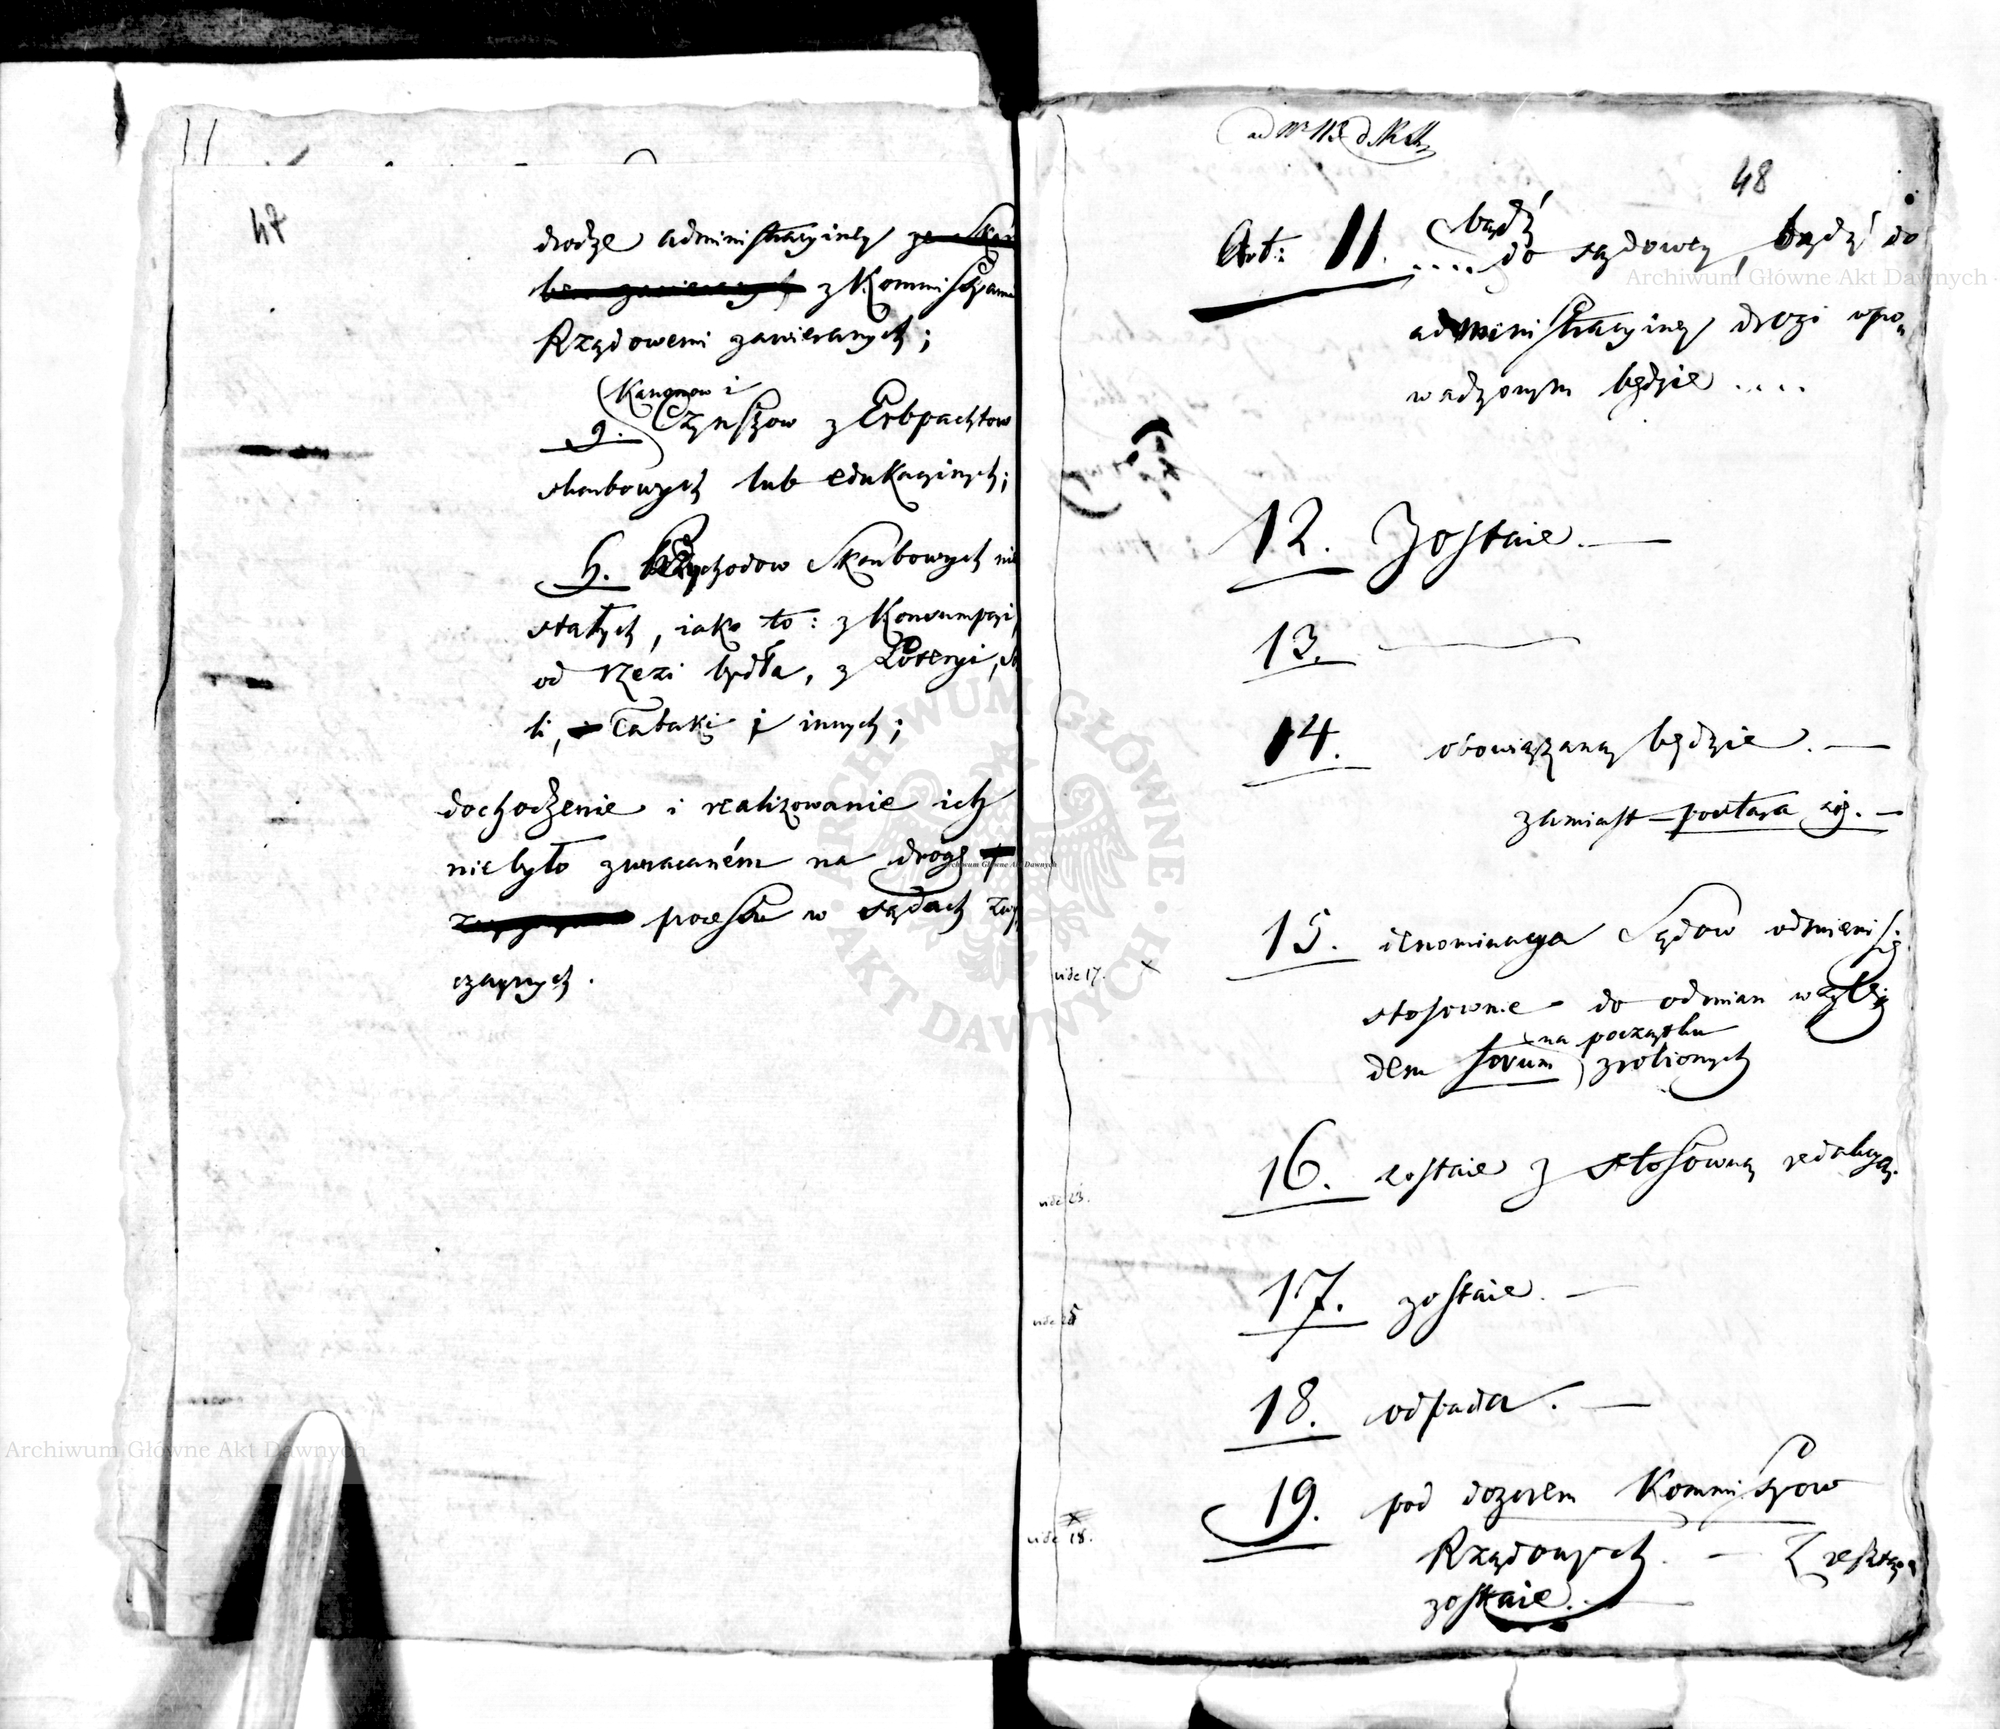 47
drodze administracyiney ze Skar
bem zawieranych z Kommissyami
Rządowemi zawieranych;
Kanonow i
g. Czynszow z Erbpachtow
skarbowych lub edukacyinych;
h. Przychodow Skarbowych nie
stałych, iako to: z Konsumpcyi,
od rzezi bydła, z Loteryi, so
li, Tabaki i innych;
dochodzenie i realizowanie ich
nie było zwracaném na drogę
processu w sądach zwy
czaynych.
48
bądź
Art: 11. .... do sądowey, bądź do
administracyiney drogi upo
ważzonym będzie ....
12. Zostaie. —
13. —
14. obowiązany będzie. —
zamiast — poddaia się. —
vide 17. ×
15. denominacya Sądow odmieni się
stosownie do odmian wzglę
na początku
dem forum zrobionych
vide 23.
16. zostaie z stosowną redakcyą.
vide 25
17. zostaie. —
18. odpada. —
vide 18.
19. pod dozorem Kommissyow
Rządowych. — Z resztą
zostaie. —
Archiwum Główne Akt Dawnych
Archiwum Główne Akt Dawnych
Archiwum Główne Akt Dawnych
ARCHIWUM GŁÓWNE · AKT DAWNYCH ·